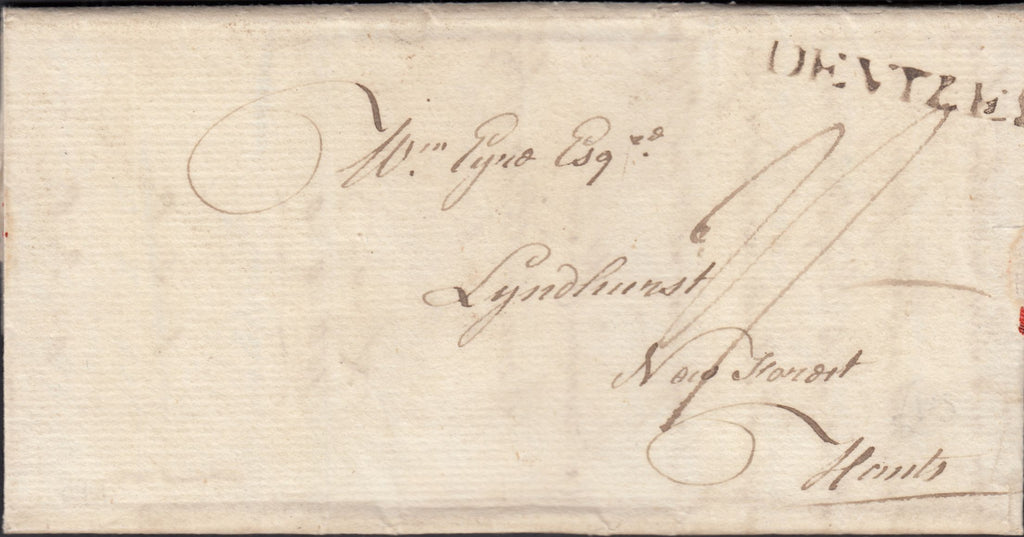 DEVIZES
Wm. Eyre Esqre.
Lyndhurst
New Forest
Hants